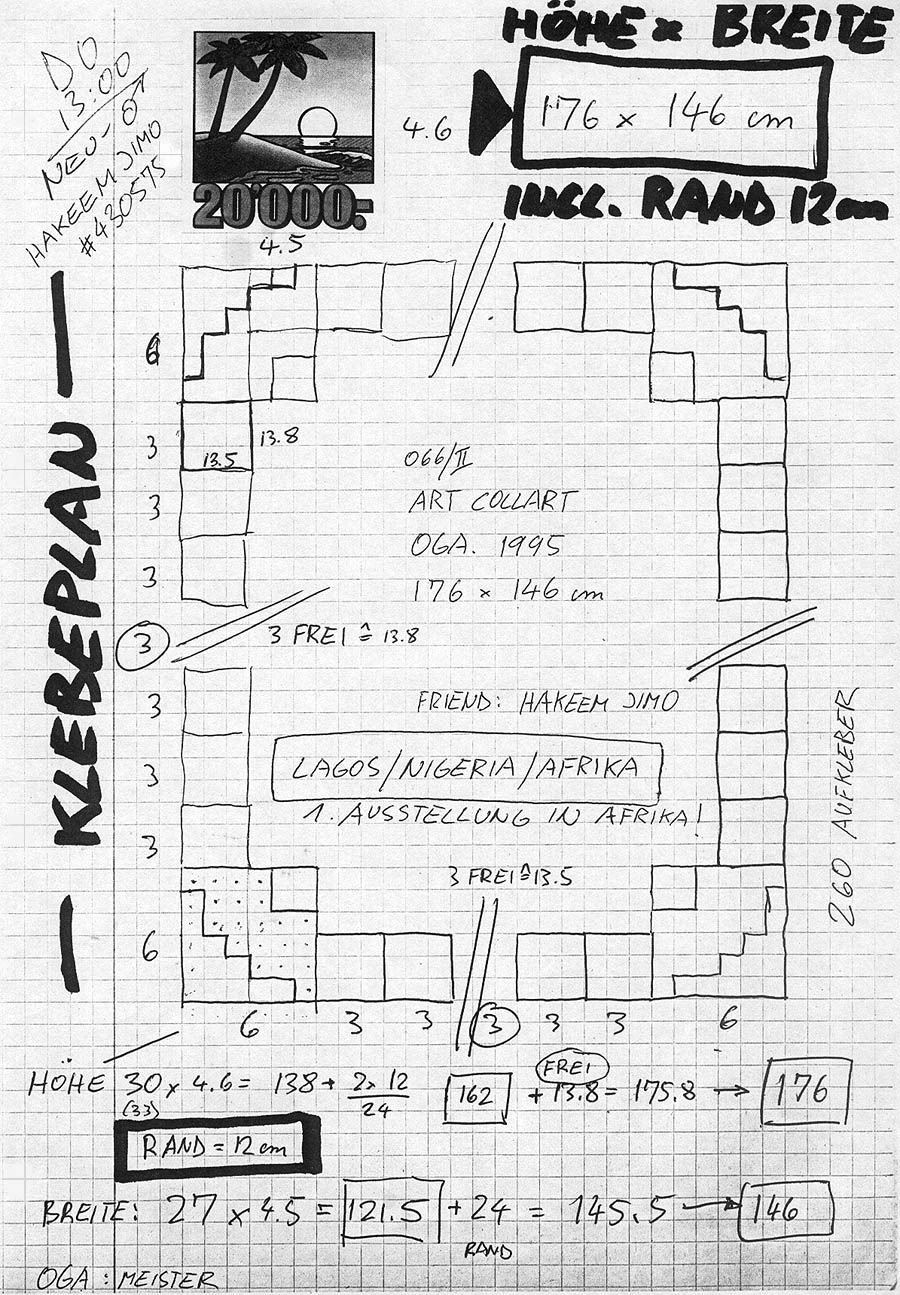 DO
13:00
NEU-O
HAKEEM JIMO
#430575
HÖHE x BREITE
176 x 146 cm
INCL. RAND 12 cm
20'000.-
4.6
4.5
KLEBEPLAN
6
3
13.8
13.5
3
3
3
066/II
ART COLLART
OGA. 1995
176 x 146 cm
3 FREI ≙ 13.8
3
3
3
6
FRIEND: HAKEEM JIMO
LAGOS/NIGERIA/AFRIKA
1. AUSSTELLUNG IN AFRIKA!
260 AUFKLEBER
3 FREI ≙ 13.5
6 3 3 3 3 3 6
HÖHE 30 x 4.6 = 138 + 2x12 162 + 13.8 = 175.8 → 176
(33)
24
FREI
RAND = 12 cm
BREITE: 27 x 4.5 = 121.5 + 24 = 145.5 → 146
RAND
OGA : MEISTER